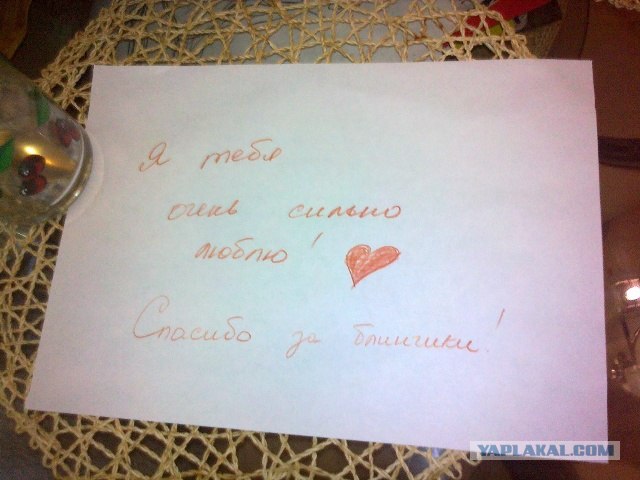 Я тебя
очень сильно
люблю!
Спасибо за блингики!
YAPLAKAL.COM